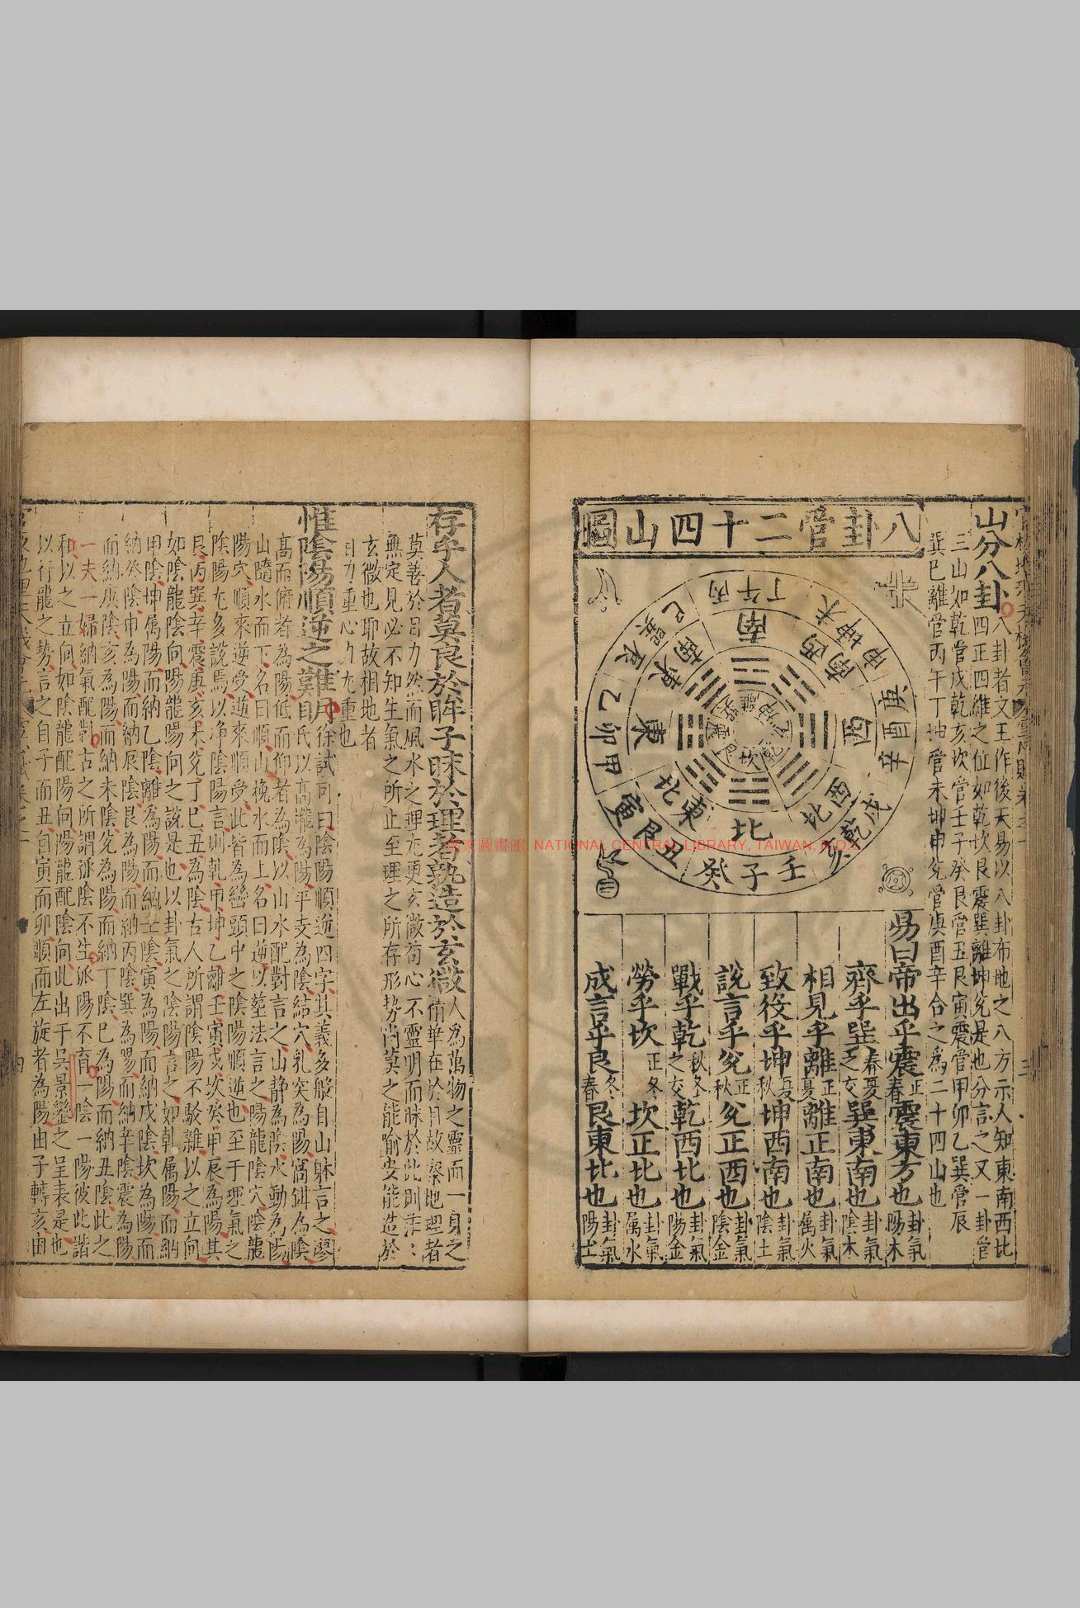 山分八卦
八卦者文王作後天易以八卦布地之八方示人知東南西北
四正四維之位如乾坎艮震巽離坤兌是也分言之又一卦管
三山如乾管戌乾亥坎管壬子癸艮管丑艮寅震管甲卯乙巽管辰
巽巳離管丙午丁坤管未坤申兌管庚酉辛合之為二十四山也
八卦管二十四山圖
南
西南
西
西北
北
東北
東
東南
丙午丁
未坤申
庚酉辛
戌乾亥
壬子癸
丑艮寅
甲卯乙
辰巽巳
易曰帝出乎震正春震東方也卦氣陽木
齊乎巽春夏之交巽東南也卦氣陰木
相見乎離正夏離正南也卦氣属火
致役乎坤夏秋坤西南也卦氣陰土
說言乎兌正秋兌正西也卦氣陰金
戰乎乾秋冬之交乾西北也卦氣陽金
勞乎坎正冬坎正北也卦氣属水
成言乎艮冬春艮東北也卦氣陽土
存乎人者莫良於眸子昧於理者孰造於玄微人為萬物之靈而一身之
精華在於目故察地理者
莫善於目力然而風水之理尤更玄微苟心不靈明而昧於此則茫茫
無定見必不知生氣之所止至理之所存形势尚莫之能喻安能造於
玄微也耶故相地者
目力重心力尤重也
惟陰陽順逆之難明
徐試可曰陰陽順逆四字其義多般自山躰言之廖
氏以高壠為陽平支為陰結穴乳突為陽窩鉗為陰
高而俯者為陽低而仰者為陰以山水配對言之山静為陰水動為陽
山隨水而下名曰順山挽水而上名曰逆以塟法言之陽龍陰穴陰龍
陽穴順來逆受逆來順受此皆為巒頭中之陰陽順逆也至于理氣之
陰陽尤多說焉以净陰陽言則乾甲坤乙離壬寅戌坎癸申辰為陽其
艮丙巽辛震庚亥未兌丁巳丑為陰古人所謂陰陽不駁雜以之立向
如陰龍陰向陽龍陽向之說是也以卦氣之陰陽言之如乾属陽而納
甲陰坤属陽而納乙陰離為陽而納壬陰寅為陽而納戌陰坎為陽而
納癸陰申為陽而納辰陰艮為陽而納丙陰巽為陽而納辛陰震為陽
而納庚陰亥為陽而納未陰兌為陽而納丁陰巳為陽而納丑陰此之
一夫一婦納氣配對古之所謂孤陰不生孤陽不育一陰一陽彼此諧
和以之立向如陰龍配陽向陽龍配陰向此出于吳景鸞之呈表是也
以行龍之势言之自子而丑自寅而卯順而左旋者為陽由子轉亥由
NATIONAL CENTRAL LIBRARY, TAIWAN, R.O.C.